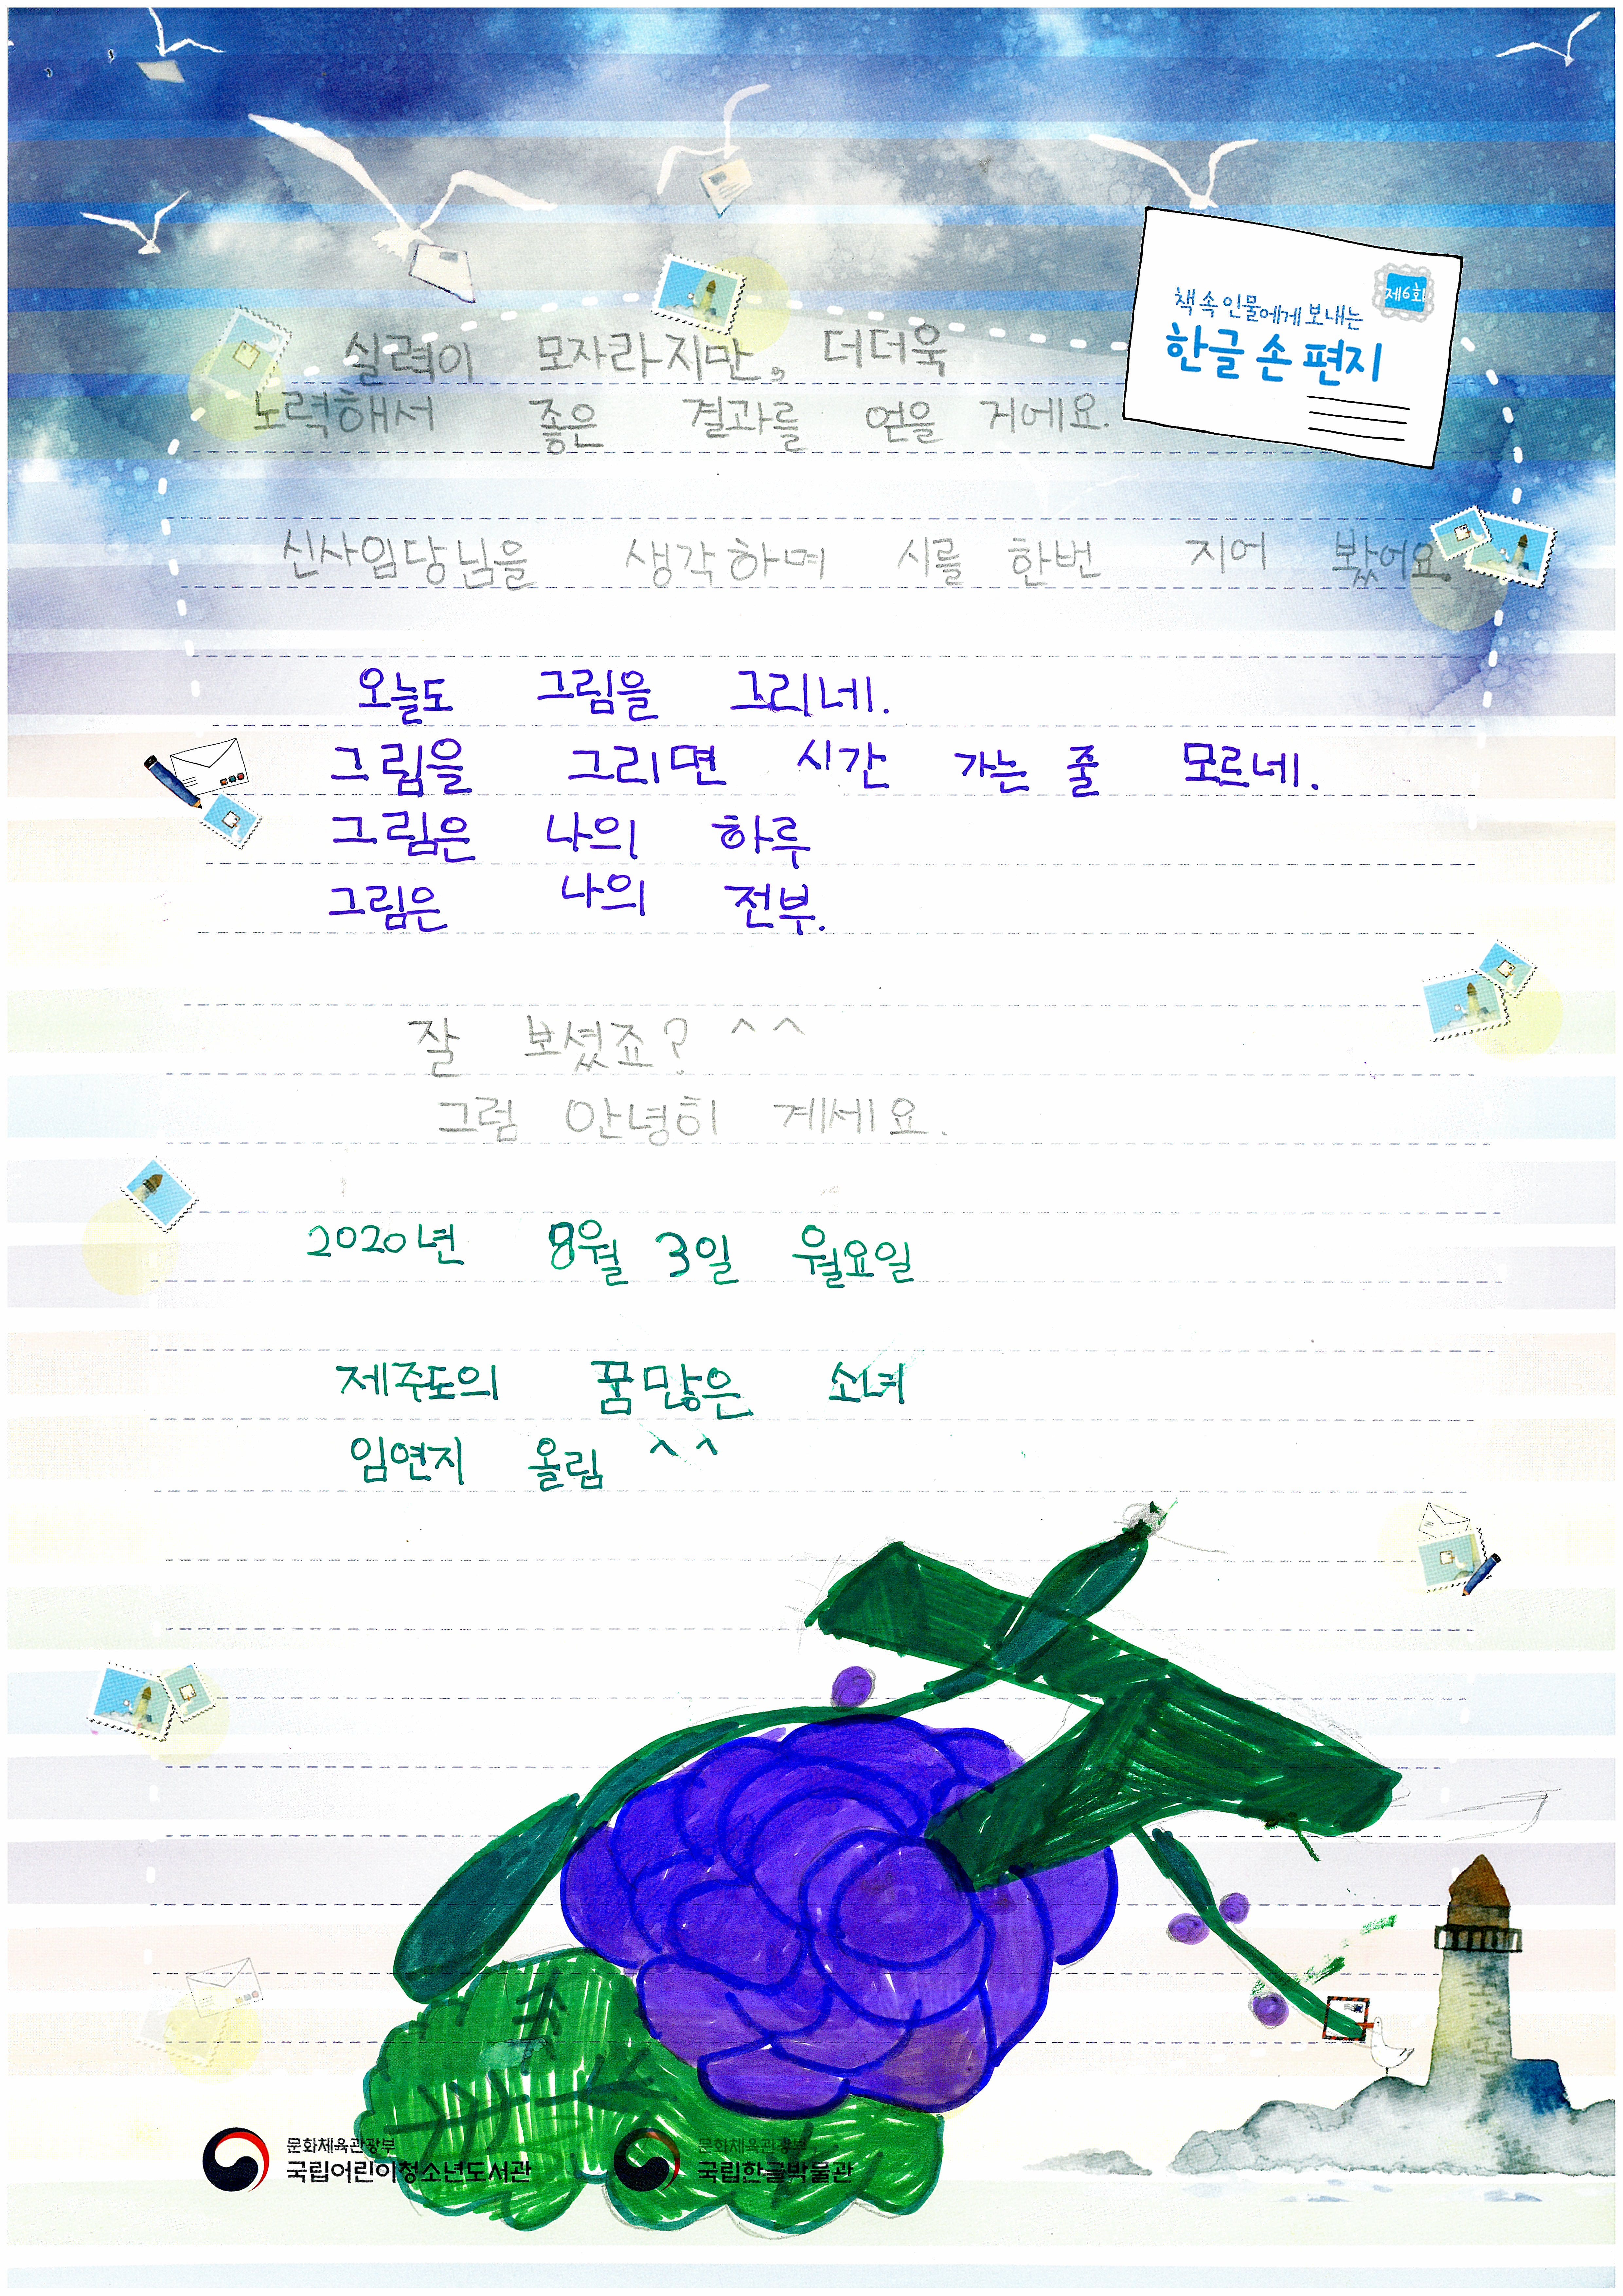 제6회
책 속 인물에게 보내는
한글 손 편지
실력이 모자라지만, 더더욱
노력해서 좋은 결과를 얻을 거에요.
신사임당님을 생각하며 시를 한번 지어 봤어요.
오늘도 그림을 그리네.
그림을 그리면 시간 가는 줄 모르네.
그림은 나의 하루
그림은 나의 전부.
잘 보셨죠? ^^
그럼 안녕히 계세요.
2020년 8월 3일 월요일
제주도의 꿈많은 소녀
임연지 올림 ^^
문화체육관광부
국립어린이청소년도서관
문화체육관광부
국립한글박물관